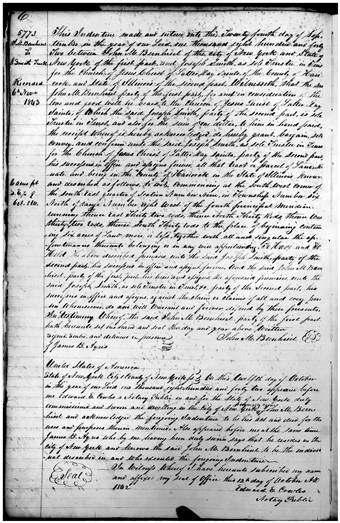 6
5773
This Indenture made and entered into this Twenty fourth day of Sep
J. M. Bernhisel
tember in the year of our Lord one thousand eight hundred and forty
To
two between John M. Bernhisel of the city of New York and State
J Smith Trustee
New York of the first part, and Joseph Smith as sole Trustee in Trust
for the Church of Jesus Christ of Latter Day Saints of the County of Han
Recorded
cock and State of Illinois of the second part, Witnesseth, that the said
6th Nov
John M. Bernhisel party of the first part, for and in consideration of the
1843
love and good will he bears to the Church of Jesus Christ of Latter Day
Saints, of Which the said Joseph Smith, party of the second part, is sole
Trustee in Trust, and also for the sum of One Dollar to him in hand paid,
the receipt Whereof is hereby acknowledged do hereby grant, bargain, sell
convey, and confirm unto the said Joseph Smith, as sole Trustee in Trust
for the Church of Jesus Christ of Latter Day Saints party of the second part
his successors in office and assigns forever, all that tract or parcel of Land sit
uate and being in the County of Hancock in the State of Illinois known
and described as follows, to wit: Commencing at the South West corner of
the South East quarter of Section Number Nine, in Township Number Six
North of Range Number Eight West of the fourth principal Meridian
running thence East Thirty two rods, thence North Thirty rods thence West
thirty two rods, thence South Thirty rods to the place of beginning contain
ing Six acres of Land
Together with all and singular the ap
purtenances thereunto belonging or in any wise appertaining, To Have and to
Hold the above described premises unto the said Joseph Smith, party of the
second part his successors in office and assigns forever. And the said John M. Bern
hisel, party of the first part, his heirs
the said Joseph Smith, as sole Trustee in Trust, party of the second part, his
successors in office and assigns against the claim or claims of all and every per
son Whomsoever, do and will Warrant and forever defend by these presents.
In Testimony Whereof the said John M. Bernhisel party of the first part
hath hereunto set his hand and seal the day and year above Written
Signed sealed and delivered in presence
John M. Bernhisel
of James B. Nyris
United States of America
State of New York City & County of New York
On this Twelfth day of October
in the year of our Lord one thousand eight hundred and forty two appeared before
me Edward G. Cowles a Notary Public in and for the State of New York duly
commissioned and sworn and dwelling in the City of New York
John M. Bern
hisel and acknowledged the foregoing Indenture to be his act and deed for the
uses and purposes therein mentioned. Also appeared before me at the same time
James B. Nyris who by me having been duly sworn says that he resides in the
City of New York and knows the said John M. Bernhisel to be the individ
ual described in and who executed the foregoing Indenture
In Witness Whereof I have hereunto subscribed my name
Seal
and affixed my seal of Office this 12th day of October A.D.
1842
Edward G. Cowles
Notary Public